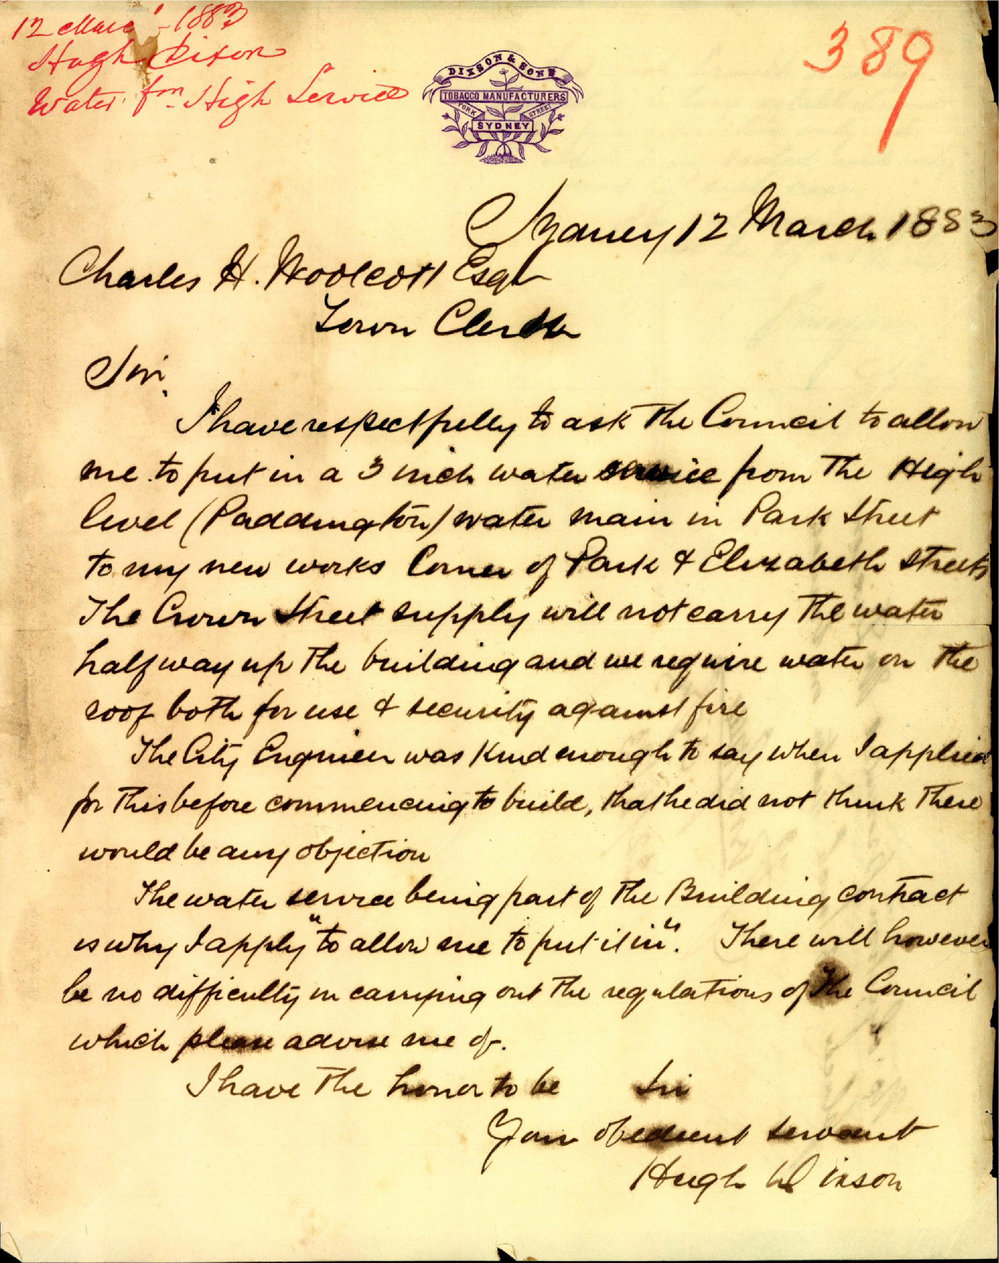 12 March 1883
Hugh Dixon
Water fm High Service
389
DIXSON & SONS
TOBACCO MANUFACTURERS
YORK STREET
SYDNEY
Sydney 12 March 1883
Charles H. Woolcott Esqr
Town Clerk
Sir,
I have respectfully to ask the Council to allow
me to put in a 3 inch water service from the High
level (Paddington) water main in Park Street
to my new works Corner of Park & Elizabeth Streets
The Crown Street supply will not carry the water
half way up the building and we require water on the
roof both for use & security against fire
The City Engineer was kind enough to say when I applied
for this before commencing to build, that he did not think there
would be any objection
The water service being part of the Building contract
is why I apply "to allow me to put it in". There will however
be no difficulty in carrying out the regulations of the Council
which please advise me of.
I have the honor to be Sir
Your obedient servant
Hugh Dixson